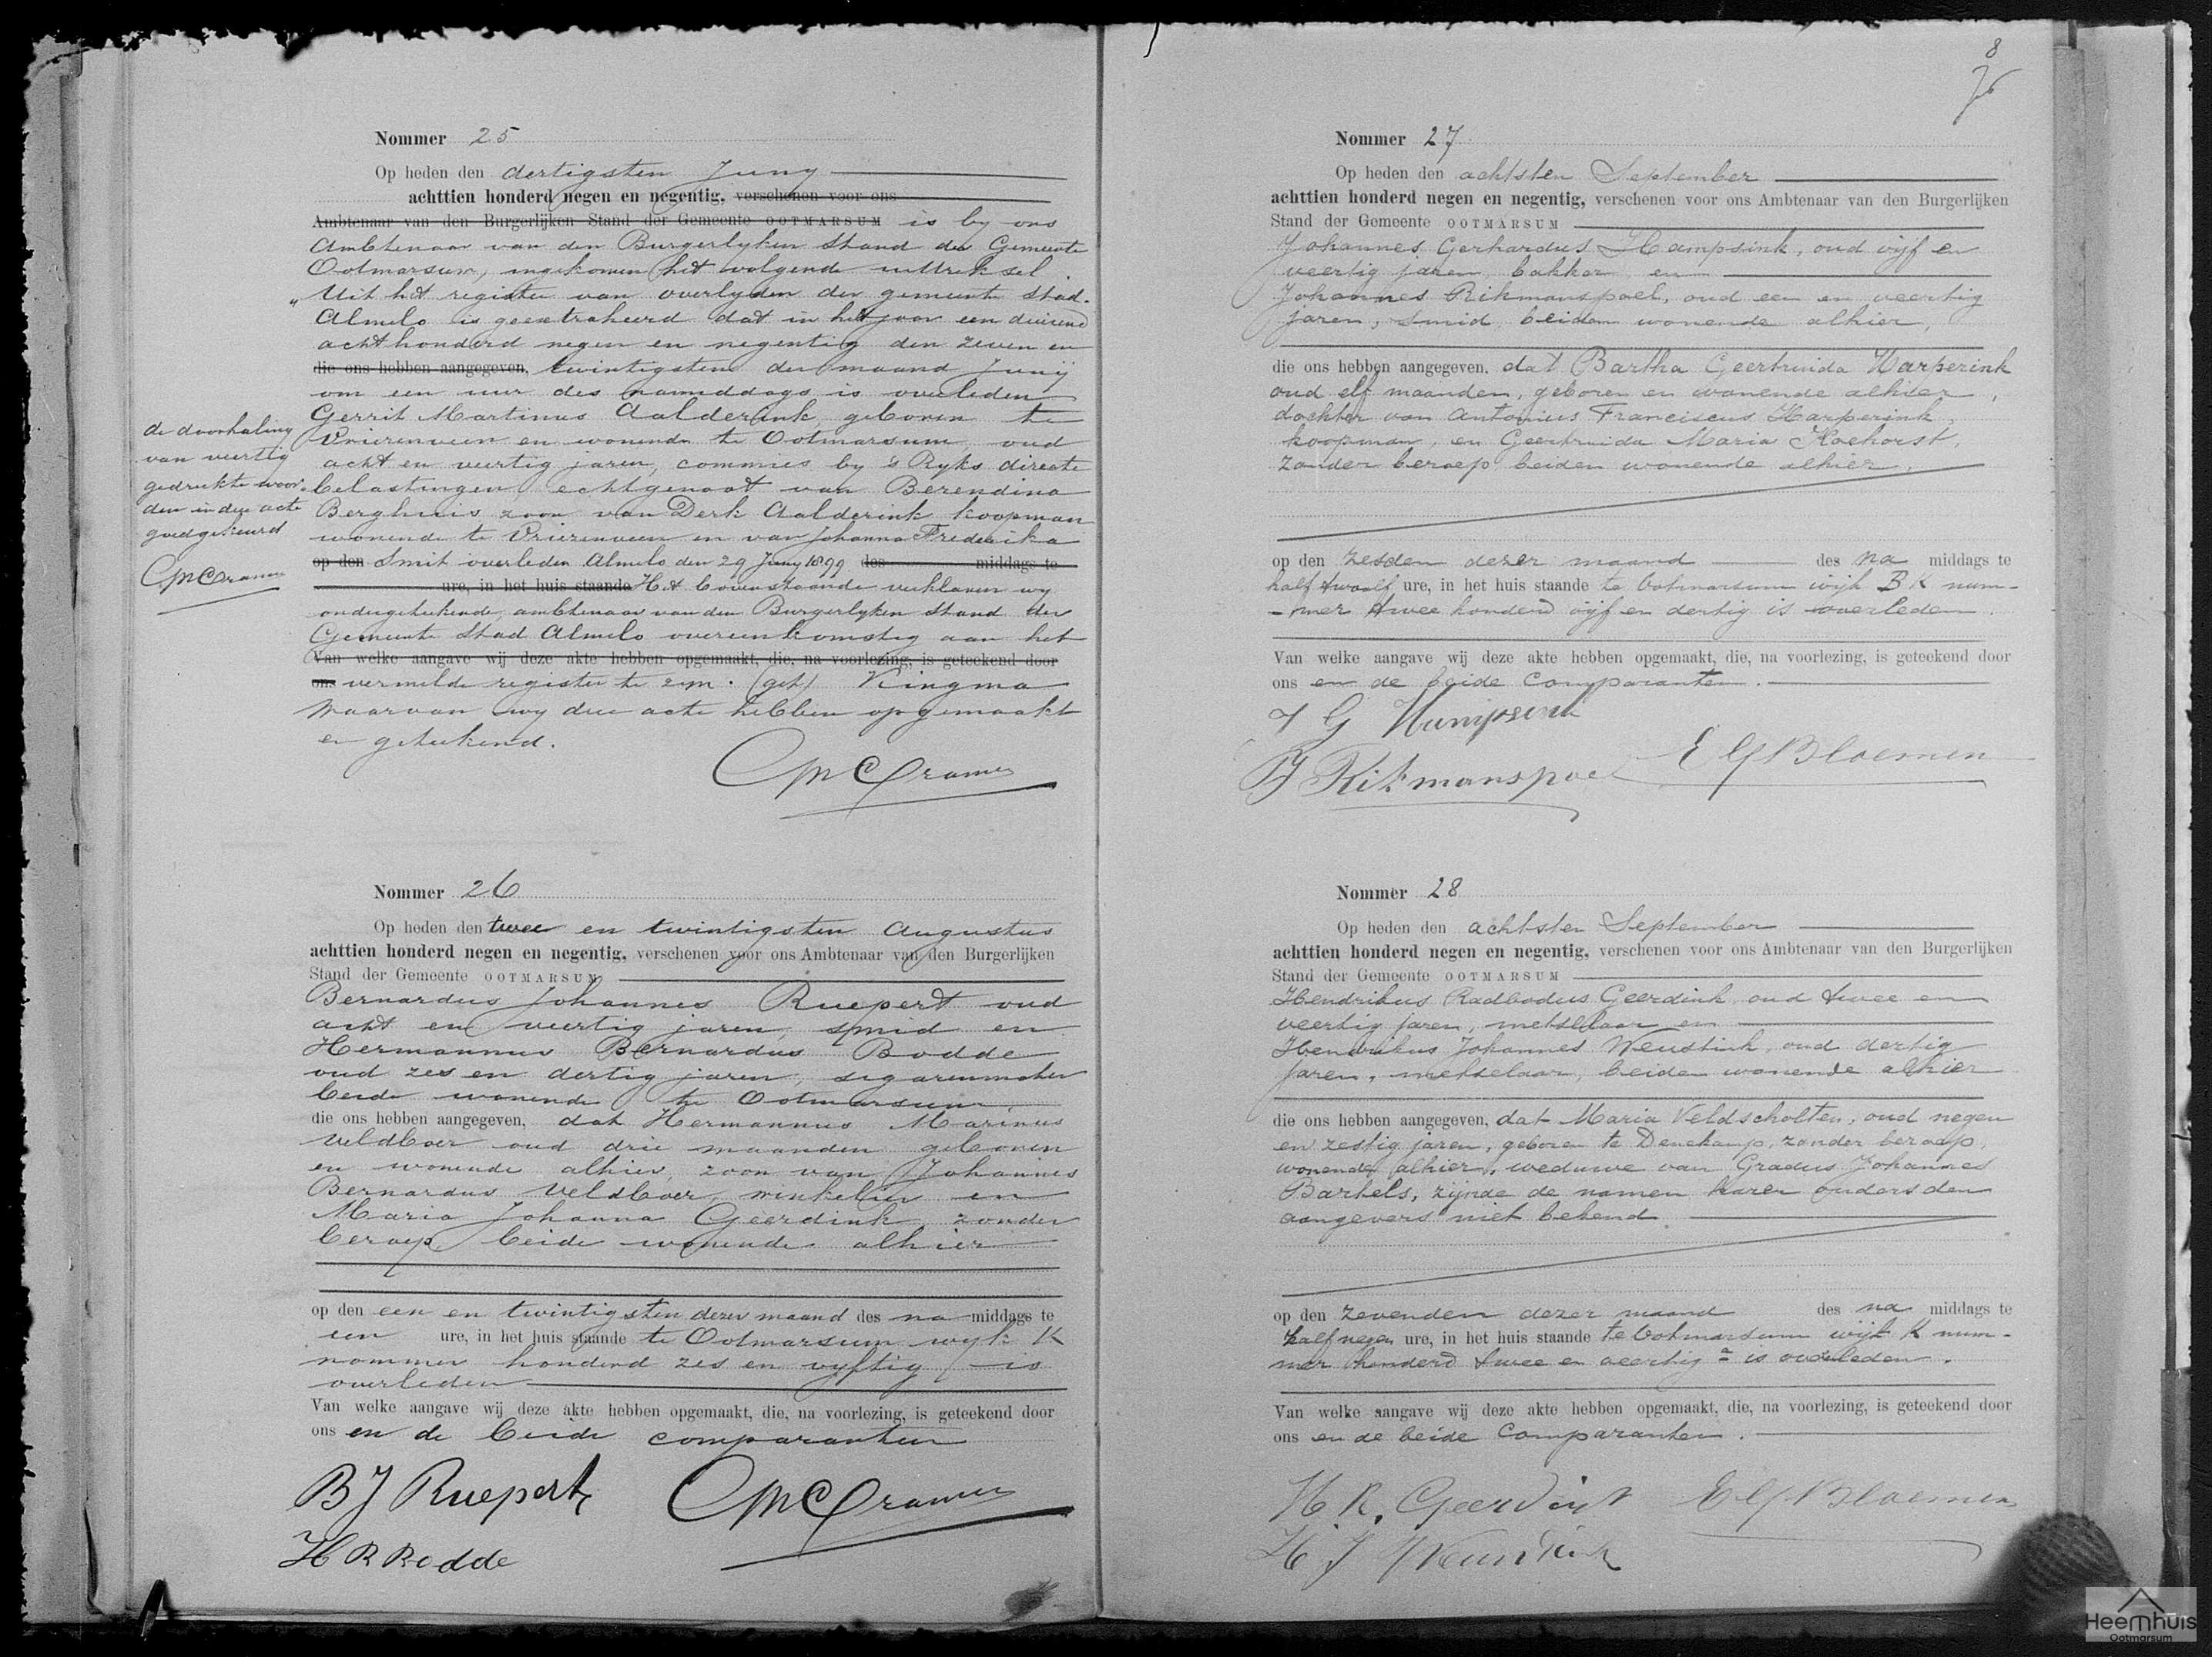 Nommer 25
Op heden den dertigsten Juny
achttien honderd negen en negentig, verschenen voor ons
Ambtenaar van den Burgerlijken Stand der Gemeente OOTMARSUM is by ons
Ambtenaar van den Burgerlyken Stand der Gemeente
Ootmarsum, ingekomen het volgende uittreksel
„Uit het register van overlyden der gemeente Stad-
Almelo is geextraheerd dat in het jaar een duizend
achthonderd negen en negentig den zeven en
die ons hebben aangegeven, twintigsten der maand Junij
om een uur des namiddags is overleden
Gerrit Martinus Aalderink geboren te
Vriezenveen en wonende te Ootmarsum oud
acht en veertig jaren, commies by 's Ryks directe
belastingen echtgenoot van Berendina
Berghuis zoon van Derk Aalderink koopman
wonende te Vriezenveen en van Johanna Frederika
op den Smit overleden Almelo den 29 Juny 1899 des middags te
ure, in het huis staande Het bovenstaande verklaren wy
ondergeteekende, ambtenaar van den Burgerlyken Stand der
Gemeente Stad Almelo overeenkomstig aan het
Van welke aangave wij deze akte hebben opgemaakt, die, na voorlezing, is geteekend door
ons vermelde register te zijn. (get) Kingma
Waarvan wy deze acte hebben opgemaakt
en geteekend.
CMCCramer
de doorhaling
van veertig
gedrukte woor-
den in deze acte
goedgekeurd
CMCCramer
Nommer 26
Op heden den twee en twintigsten Augustus
achttien honderd negen en negentig, verschenen voor ons Ambtenaar van den Burgerlijken
Stand der Gemeente OOTMARSUM
Bernardus Johannes Ruepert oud
acht en veertig jaren, smid en
Hermannus Bernardus Bodde
oud zes en dertig jaren, sigarenmaker
beide wonende te Ootmarsum,
die ons hebben aangegeven, dat Hermannus Marinus
Veldboer oud drie maanden geboren
en wonende alhier, zoon van Johannes
Bernardus Veldboer, winkelier en
Maria Johanna Geerdink, zonder
beroep, beide wonende alhier
op den een en twintigsten dezer maand des na middags te
een ure, in het huis staande te Ootmarsum wyk K
nommer honderd zes en vyftig is
overleden
Van welke aangave wij deze akte hebben opgemaakt, die, na voorlezing, is geteekend door
ons en de beide comparanten
BJ Ruepert CMCCramer
HB Bodde
8
Nommer 27
Op heden den achtsten September
achttien honderd negen en negentig, verschenen voor ons Ambtenaar van den Burgerlijken
Stand der Gemeente OOTMARSUM
Johannes Gerhardus Hampsink, oud vijf en
veertig jaren, bakker en
Johannes Rikmanspoel, oud een en veertig
jaren, smid, beiden wonende alhier,
die ons hebben aangegeven, dat Bartha Geertruida Harperink
oud elf maanden, geboren en wonende alhier,
dochter van Antonius Franciscus Harperink,
koopman, en Geertruida Maria Koehorst,
zonder beroep beiden wonende alhier,
op den zesden dezer maand des na middags te
half twaalf ure, in het huis staande te Ootmarsum wijk BK num-
-mer twee honderd vijf en dertig is overleden.
Van welke aangave wij deze akte hebben opgemaakt, die, na voorlezing, is geteekend door
ons en de beide Comparanten.
J G Hampsink
J Rikmanspoel E G Bloemen
Nommer 28
Op heden den achtsten September
achttien honderd negen en negentig, verschenen voor ons Ambtenaar van den Burgerlijken
Stand der Gemeente OOTMARSUM
Hendrikus Radbodus Geerdink oud twee en
veertig jaren, metselaar en
Hendrikus Johannes Weustink, oud dertig
jaren, metselaar, beiden wonende alhier
die ons hebben aangegeven, dat Maria Veldscholten, oud negen
en zestig jaren, geboren te Denekamp, zonder beroep,
wonende alhier, weduwe van Gradus Johannes
Barhels, zijnde de namen harer ouders den
aangevers niet bekend.
op den zevenden dezer maand des na middags te
half negen ure, in het huis staande te Ootmarsum wijk K num-
mer honderd twee en veertig a is overleden.
Van welke aangave wij deze akte hebben opgemaakt, die, na voorlezing, is geteekend door
ons en de beide Comparanten.
H R. Geerdink E G Bloemen
H J Weustink
Heemhuis
Ootmarsum